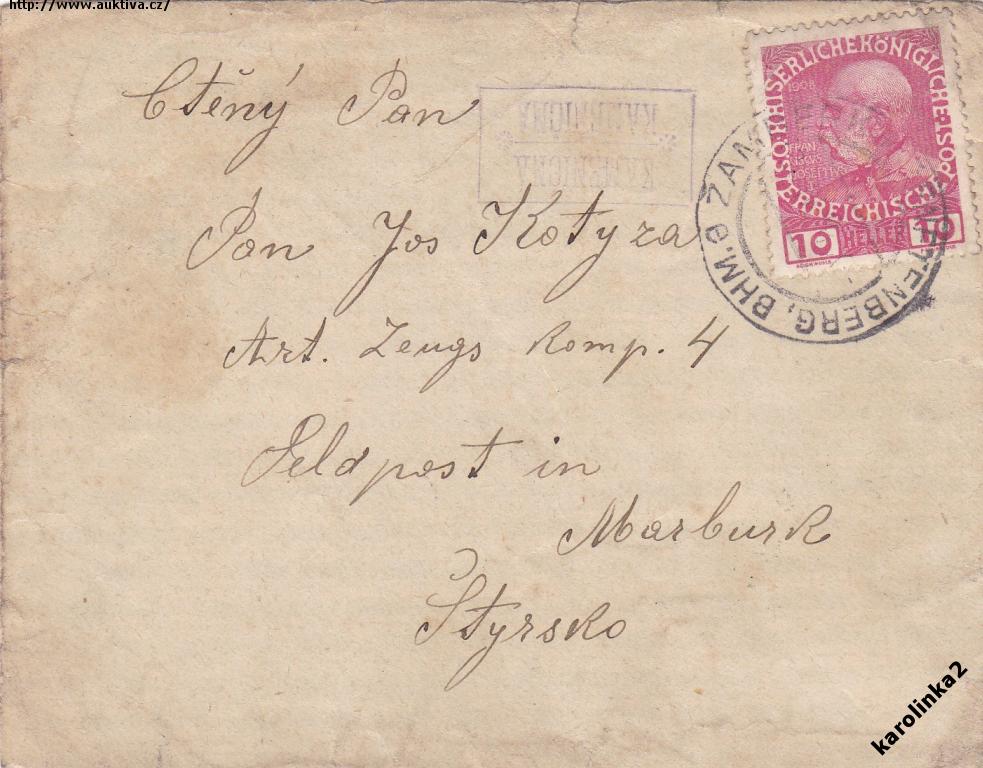 http://www.auktiva.cz/
Ctěný Pan
KAMENIČNA
KAMENIČNA
Pan Jos Kotyza
Art. Zeugs Komp. 4
Feldpost in
Marburk
Štyrsko
KAISERLICHE KÖNIGLICHE ÖSTERREICHISCHE POST
1908
FRAN
CISCVS
JOSEPHVS
I
10 HELLER 10
SENFTENBERG, BHM. e ŽAM
karolinka2